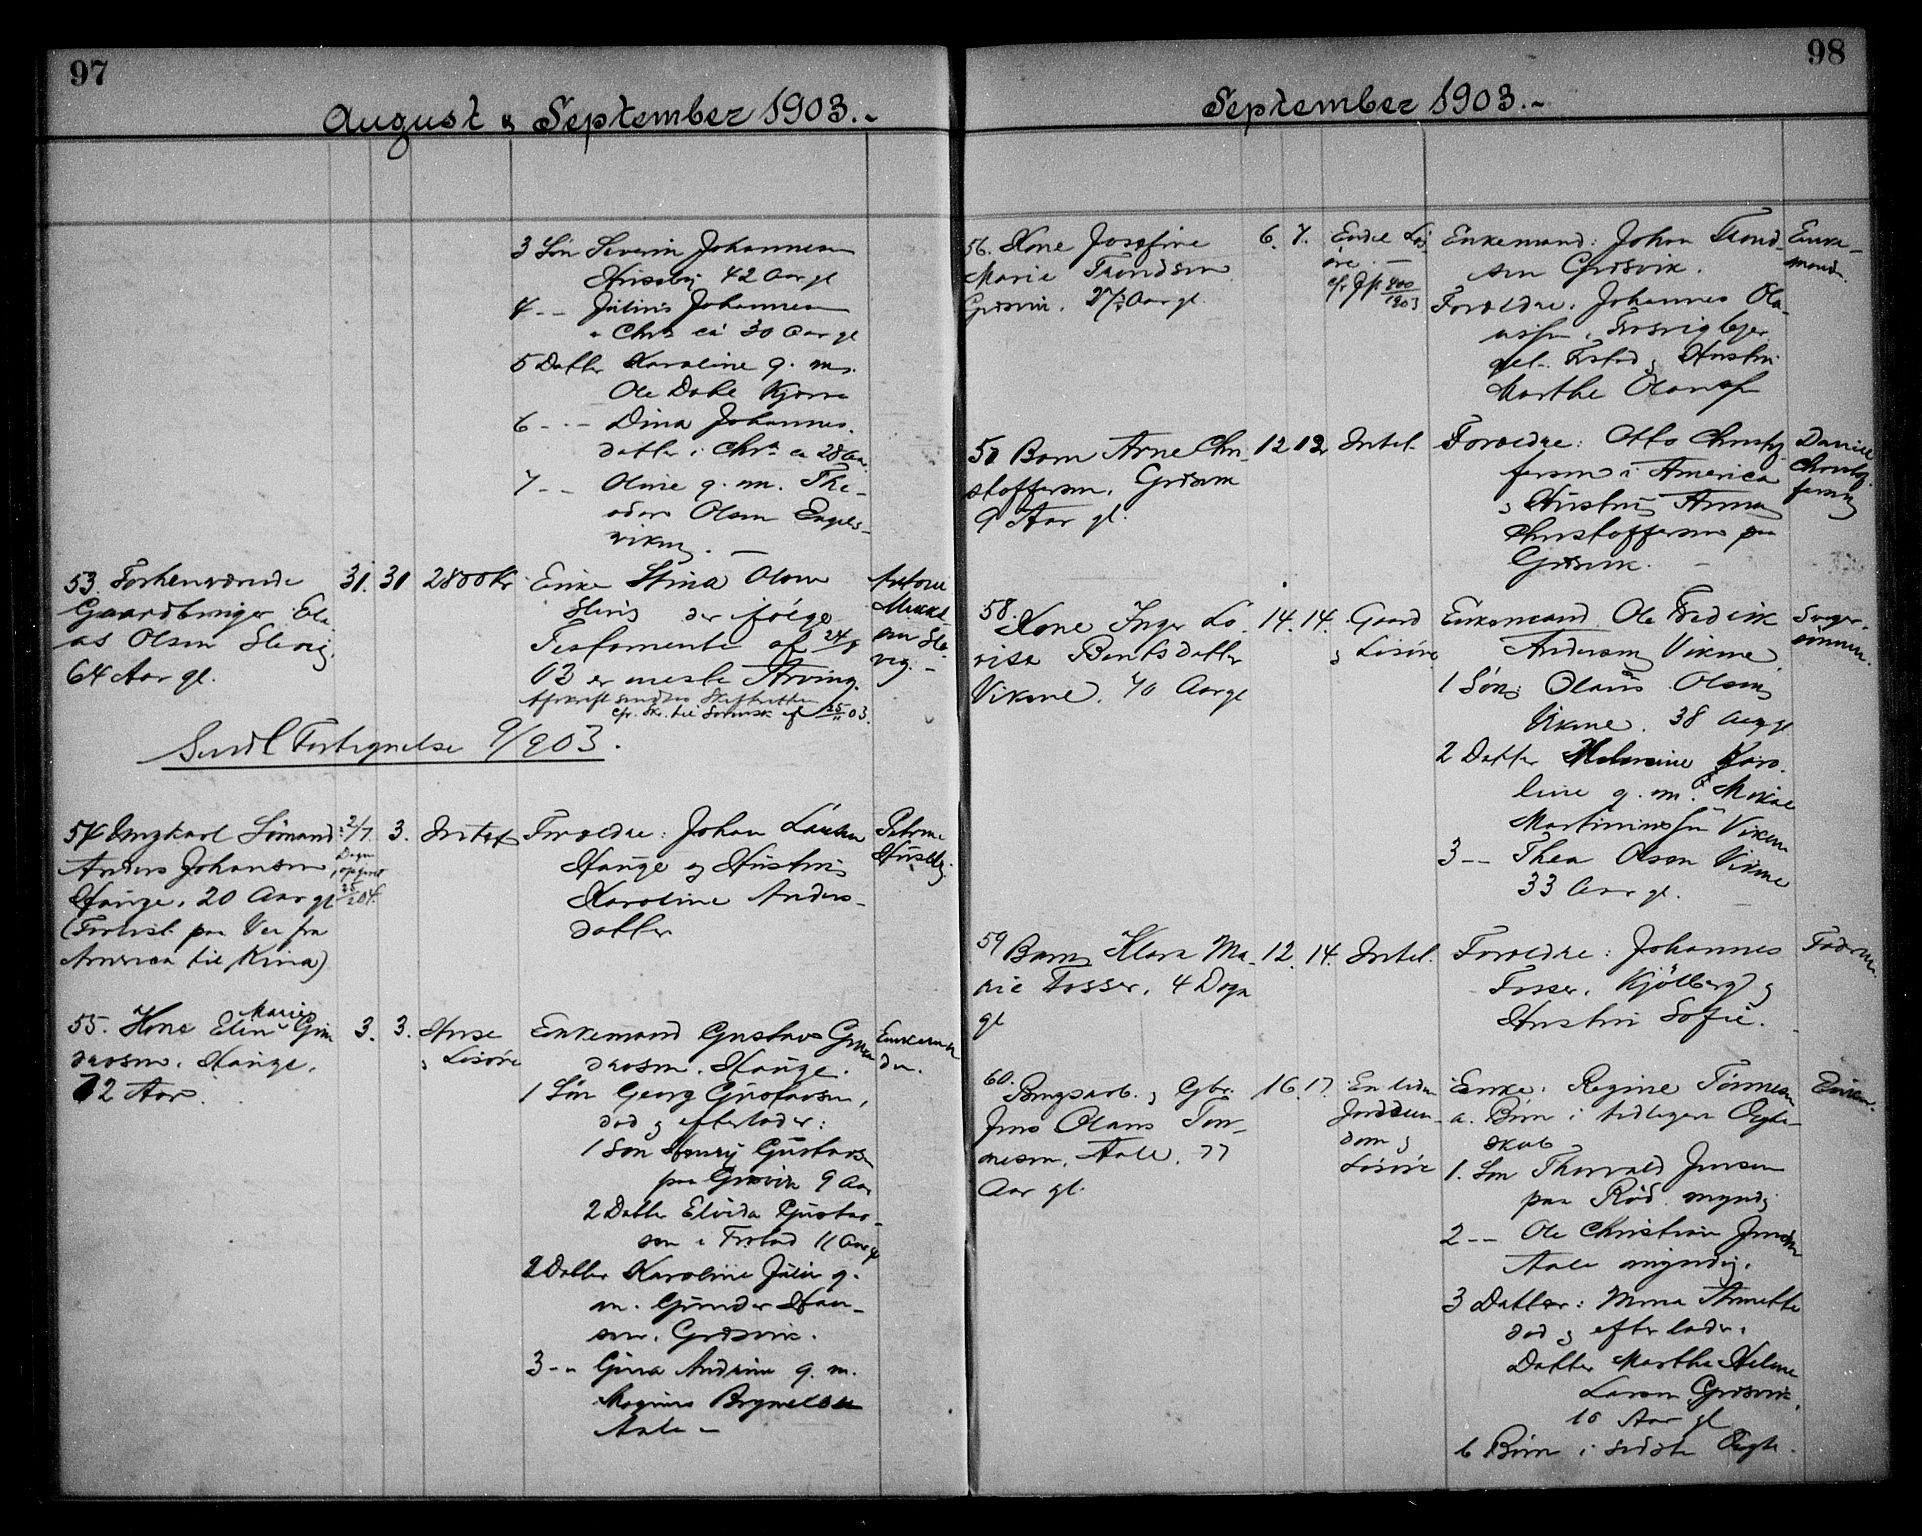 97
August & September 1903.
3 Søn Severin Johannesen
Huseby 42 Aar gl
4 - - Julius Johannesen
i Chr.a ca 30 Aar gl
5 Datter Karoline g. m.
Ole Dahl Kjærre
6 - - Dina Johannes-
datter i Chr.a ca 28 Aar
7 - - Oline g. m. The-
odor Olsen Engels-
viken.
53. Forhenværende
Gaardbruger Eli-
as Olsen Slevig,
64 Aar gl.
31. 31 2800 Kr
Enke Stina Olsen
Slevig der ifølge
Testamente af 24/8
03 er eneste Arving.
Afskrift sendes Skifteretten
cfr. Skr. til Sorensk af 25/11 03.
Antone
Mikkel-
sen Sle-
vig.
Sendt Fortegnelse 9/903.
54 Ungkarl Sømand
Anders Johansen
Hauge, 20 Aar gl
(Forlist paa Vei fra
America til Kina)
2/7. 3. Intet
Dagen
opgivet
25/2 04.
Forældre: Johan
Hauge og Hustru
Karoline Anders-
datter
Petrine
Huseby.
55. Kone Elen Marie Gun-
dersen. Hauge.
72 Aar.
3. 3. Huse
& Løsøre
Enkemand Gustav Gun-
dersen. Hauge.
1 Søn Georg Gustavsen,
død & efterlader:
1 Søn Henry Gustavsen
paa Gresvik 9 Aar
2 Datter Elvida Gustav-
sen i Frstad 11 Aar gl
2 Datter Karoline Julie g.
m. Gunder Han-
sen. Gresvik.
3 - - Gina Andrine g. m.
Magnus Brynelsen
Aale -
Enkeman-
den.
98
September 1903.
56. Kone Josefine
Marie Trondsen
Gresvik. 27 1/2 Aar gl.
6. 7. Endel Løs-
øre. -
cfr. Jf. 400/1903
Enkemand: Johan Trond-
sen Gresvik.
Forældre: Johannes Ola-
ussen, Trosvigberget
pr. Frstad & Hustru
Marthe Olausen
Enke-
mand.
57 Barn Arne Chri-
stoffersen, Gresvik
9 Aar gl.
12 12 Intet
Forældre: Otto Christof-
fersen i America
& Hustru Anna
Christoffersen paa
Gresvik.
Daniel
Christof-
fersen
58.
Kone Inger Lo-
visa Berntsdatter
Vikene. 70 Aar gl
14. 14. Gaard
& Løsøre
Enkemand Ole Fredrik
Andersen Vikene.
1 Søn: Olaus Olsen
Vikene. 38 Aar gl
2 Datter Helmine Karo-
line g. m. Mikal
Martiniussen Viken
3 - - Thea Olsen Vikene
33 Aar gl.
Sviger-
sønnen.
59 Barn Klara Ma-
rie Fosser, 4 Dage
gl
12. 14. Intet.
Forældre: Johannes
Fosser, Kjølberg &
Hustru Sofie.
Faderen.
60.
Brugsarb. & Gbr.
Jens Olaus Tøn-
nesen, Aale, 77
Aar gl.
16. 17. En liden
Jordeien-
dom &
Løsøre
Enke: Regine Tønnesen
a. Børn i tidligere Ægte-
skab
1. Søn Thorvald Jensen
paa Rød myndig
2 - - Ole Christian Jensen
Aale myndig.
3 Datter: Mina Annette
død & efterlader:
Datter Marthe Helene
Larsen Gresvik,
16 Aar gl
b Børn i sidste Ægte-
Enken.